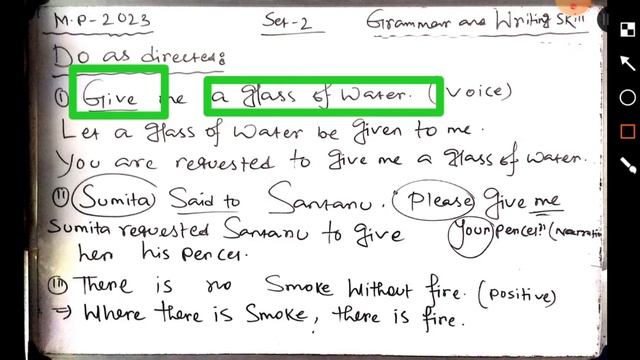 M.P-2023 Set-2 Grammar and Writing Skill
Do as directed:
(i) Give me a glass of water. (voice)
Let a glass of water be given to me.
You are requested to give me a glass of water.
(ii) Sumita Said to Santanu. Please give me
Sumita requested Santanu to give your pencil" (Narration
her his pencel.
(iii) There is no Smoke without fire. (positive)
⇒ Where there is Smoke, there is fire.